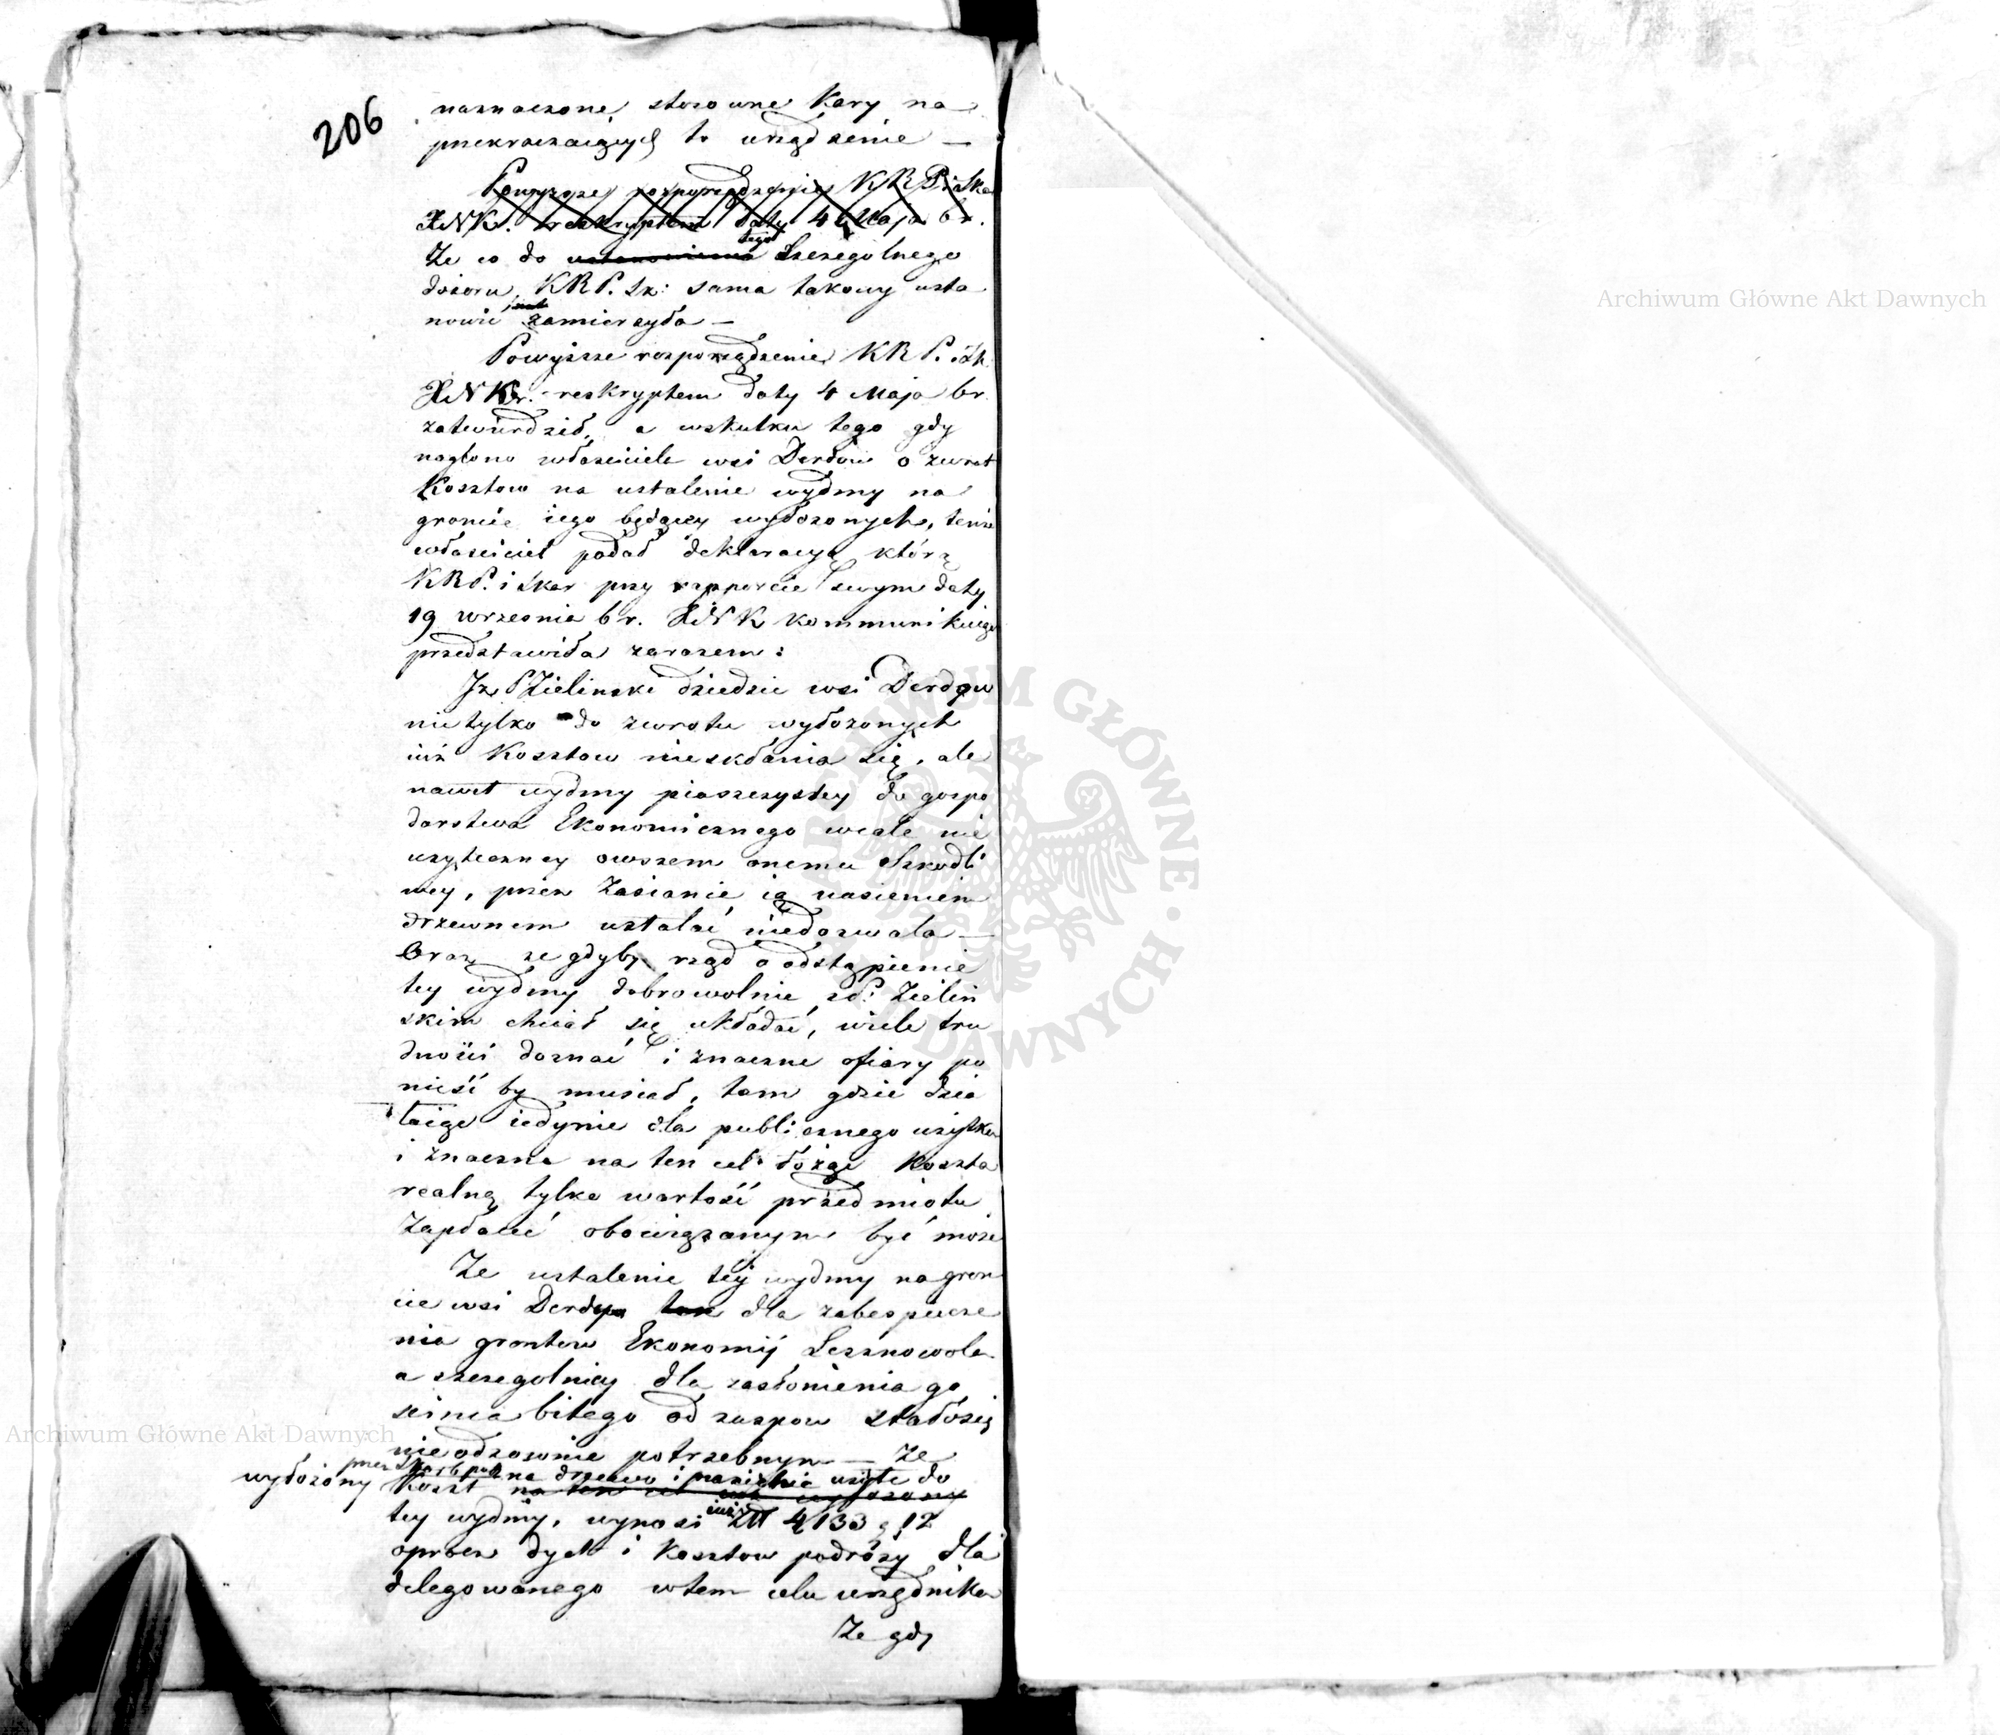 206
naznaczone, stosowne Kary na
przekraczaiących to urządzenie —
Powyższe rozporządzenie K R P i Skar
XNK. reskryptem daty 4 Maja b r.
Że co do ustanowienia tego Szczegolnego
dozoru, KRP. Sk: sama takowy usta
nowić zamierzyła —
Powyższe rozporządzenie KRP. i Sk.
XNK. reskryptem daty 4 Maja br.
zatwierdził, a wskutku tego gdy
naglono właściciela wsi Derdow o zwrot
Kosztow na ustalenie wydmy na
gruncie iego będącey wyłożonych, tenże
właściciel podał deklaracyą którą
KRP. i Skar przy rapporcie swym daty
19 września b r. XNK kommunikuiąc
przedstawiła zarazem:
Iż P. Zielinski dziedzic wsi Derdow
nie tylko do zwrotu wyłożonych
iuż Kosztow nieskłania się, ale
nawet wydmy piaszczystey do gospo
darstwa Ekonomicznego wcale nie
użyteczney owszem onemu Szkodli
wey, przez Zasianie ią nasieniem
drzewnem ustalać niedozwala —
Oraz że gdyby rząd o odstąpienie
tey wydmy dobrowolnie z P. Zielin
skim chciał się układać, wiele tru
dności doznać i znaczne ofiary po
nieść by musiał, tam gdzie dzia
łaiąc iedynie dla publicznego użytku
i znaczne na ten cel łożąc Koszta
realną tylko wartość przedmiotu
Zapłacić obowiązanym być może
Że ustalenie tey wydmy na grun
cie wsi Derdow dla zabespiecze
nia gruntow Ekonomij Lesznowola
a szczegolniey dla zasłonienia go
scinca bitego od zaspow stałosię
nieodzownie potrzebnym — Że
wyłożony przez Skarb publ na drzewo i nasienie użyte do
Koszt na ten cel iuż wyłożony
tey wydmy, wynosi iuż Zll 4133 g 12
oprocz dyet i Kosztow podróży dla
delegowanego wtem celu urzędnika
Że gdy
Archiwum Główne Akt Dawnych
Archiwum Główne Akt Dawnych
ARCHIWUM GŁÓWNE AKT DAWNYCH